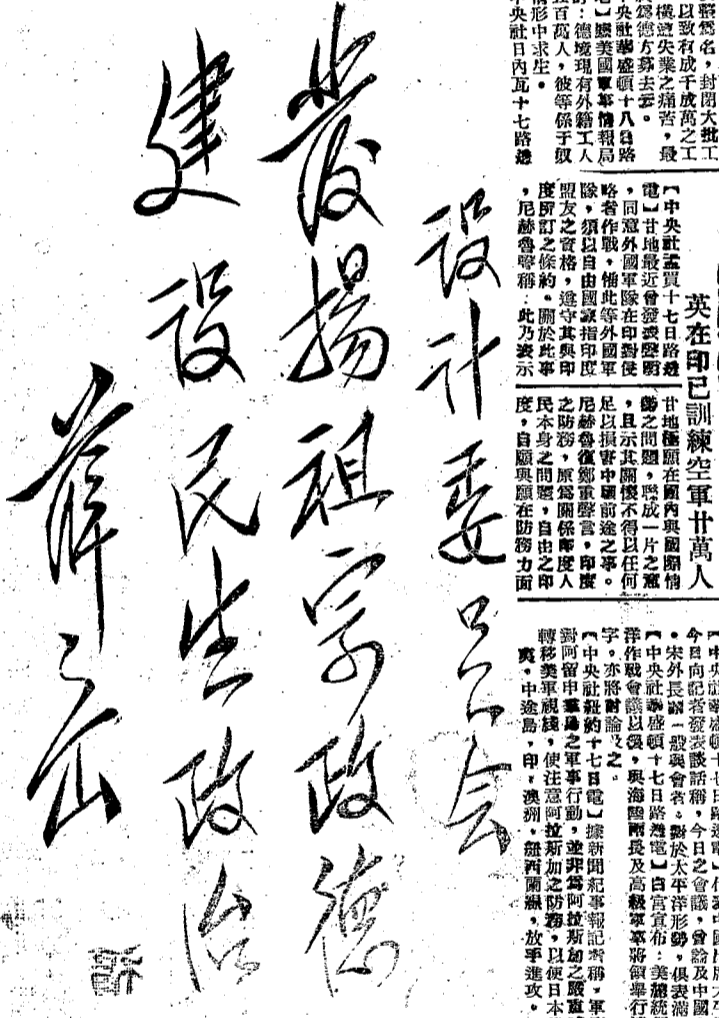 為名，封閉大批工
以致有成千成萬之工
橫遭失業之痛苦，最
為德方募去云。
央社華盛頓十八日路
電】據美國軍事情報局
：德境現有外籍工人
五百萬人，彼等係于奴
情形中求生。
央社日內瓦十七路透
英在印已訓練空軍廿萬人
【中央社孟買十七日路透
電】甘地最近曾發表聲明
，同意外國軍隊在印對侵
略者作戰，惟此等外國軍
隊，須以自由國家指印度
盟友之資格，遵守其與印
度所訂之條約。關於此事
，尼赫魯聲稱：此乃表示
甘地極願在國內與國際情
勢之問題，聯成一片之意
，且示其關懷不得以任何
足以損害中國前途之事。
尼赫魯復鄭重聲言，印度
之防務，原為關係印度人
民本身之問題，自由之印
度，自願與願在防務力面
今日向記者發表談話稱，今日之會議，曾論及中國
。宋外長一般與會者。對於太平洋形勢，俱表滿
【中央社華盛頓十七日路透電】白宮宣布：美總統
洋作戰會議以後，與海陸兩長及高級軍事將領舉行
字，亦將討論及之。
【中央社紐約十七日電】據新聞紀事報記者稱，軍
對阿留申羣島之軍事行動，並非為阿拉斯加之嚴重
轉移美軍視綫，使注意阿拉斯加之防務，以便日本
夷，中途島，印，澳洲，紐西蘭綫，放手進攻。
設計委員會
發揚祖宗政德
建設民生政治
薛岳